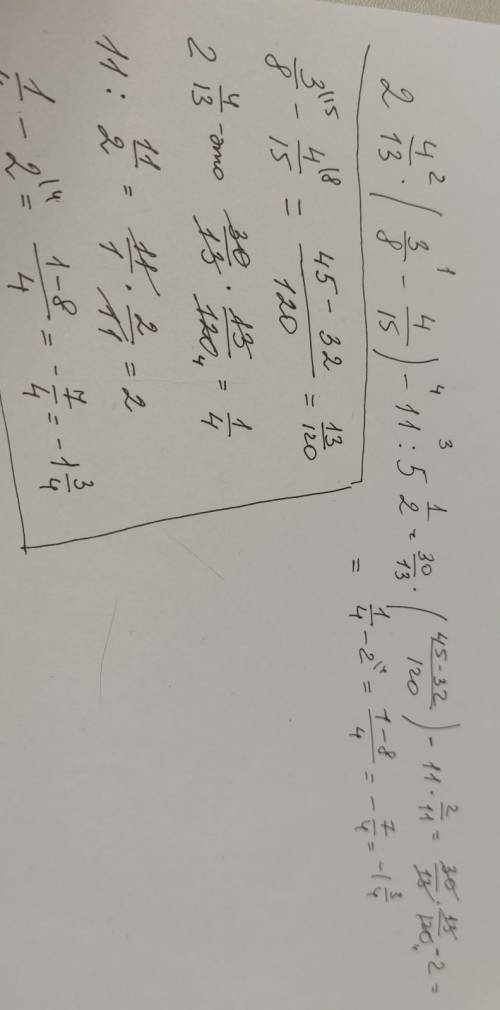 2 4/13² · (3/8 ¹- 4/15) ⁴- 11 ³: 5 1/2 = 30/13 · (45-32/120) - 11 · 2/11 = 30/13 · 13/120₄ - 2 =
= 1/4 - 2\⁴ = 1-8/4 = -7/4 = -1 3/4
3\¹⁵/8 - 4\⁸/15 = 45-32/120 = 13/120
2 4/13 - это 30/13 · 13/120₄ = 1/4
11 : 11/2 = 11/1 · 2/11 = 2
1/4 - 2\⁴ = 1-8/4 = -7/4 = -1 3/4